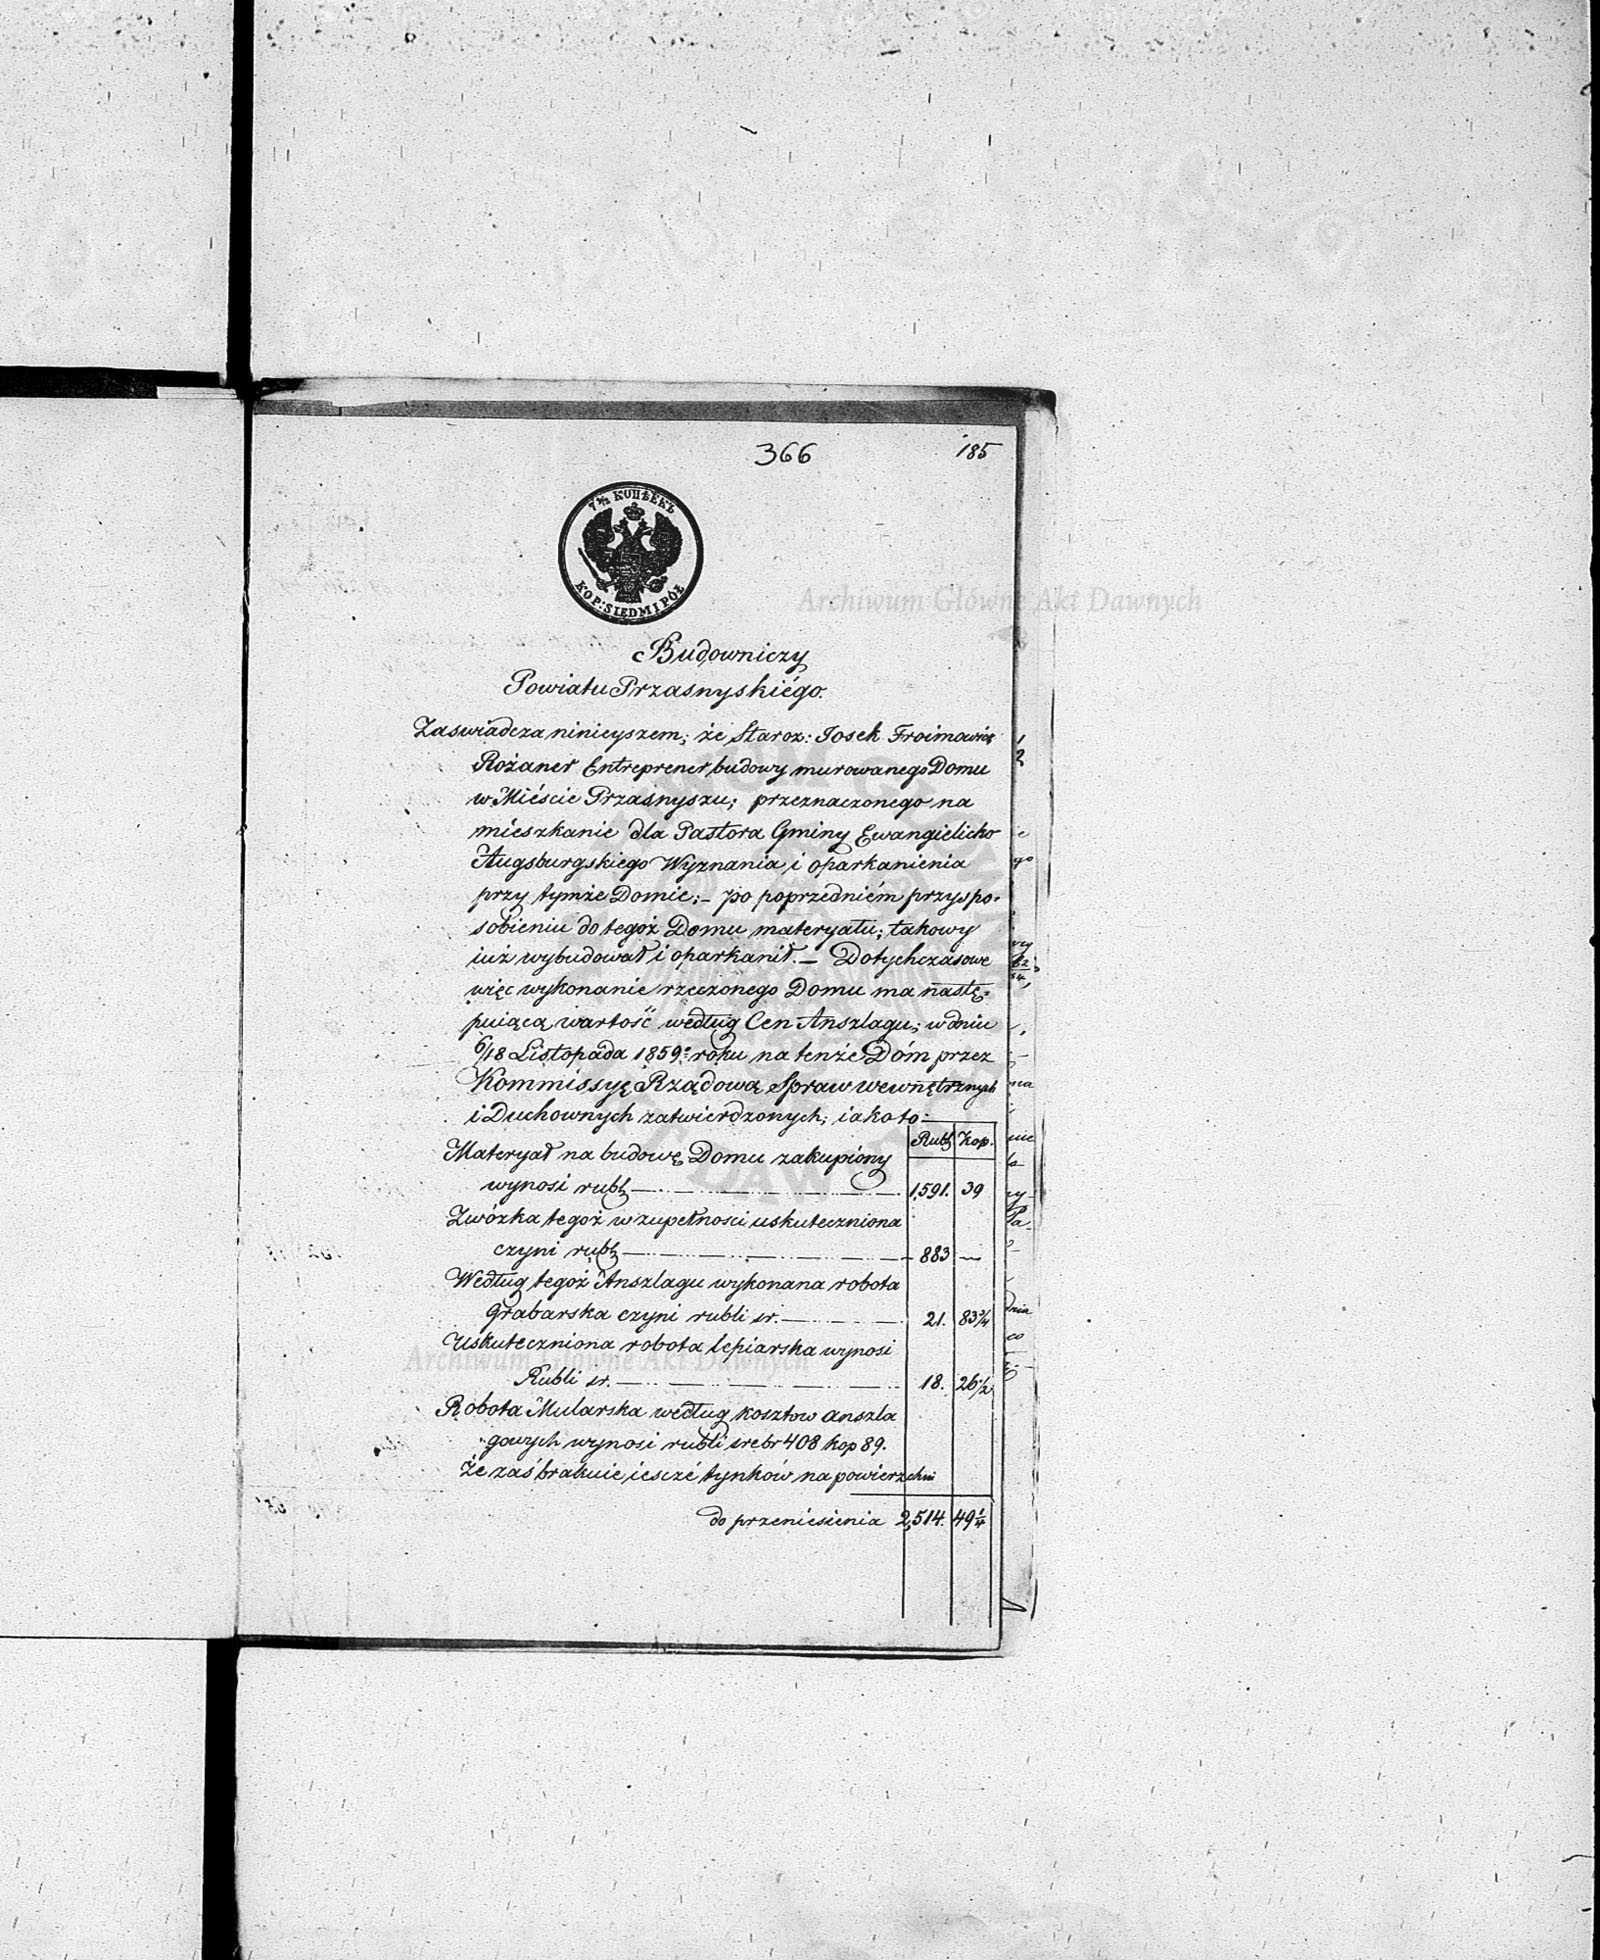 366
185
7 1/2 КОПѢЕКЪ
KOP: SIEDM I PÓŁ
Archiwum Główne Akt Dawnych
Budowniczy
Powiatu Przasnyskiégo.
Zaswiadcza ninieyszem; że Staroz: Josek Froimowicz
Rożaner Entreprener budowy murowanego Domu
w Miéście Przasnyszu; przeznaczonego na
miészkanie dla Pastora Gminy Ewangielicko
Augsburgskiego Wyznania i oparkanienia
przy tymże Domie:– po poprzedniém przyspo-
sobieniu do tegoż Domu materyału; takowy
iuż wybudował i oparkanił.– Dotychczasowe
więc wykonanie rzeczonego Domu ma nastę-
puiącą wartość według Cen Anszlagu; w dniu
6/18 Listopada 1859o roku na tenże Dóm przez
Kommissyę Rządową Spraw wewnętrznych
i Duchownych zatwierdzonych; iako to:
Rubl Kop.
Materyał na budowę Domu zakupiony
wynosi rubl 1,591. 39
Zwózka tegoż w zupełnosci uskuteczniona
czyni rubl 883 —
Według tegoż Anszlagu wykonana robota
Grabarska czyni rubli sr. 21. 83 3/4
Uskuteczniona robota lepiarska wynosi
Rubli sr. 18. 26 1/2
Archiwum Główne Akt Dawnych
Robota Mularska według kosztow anszla
gowych wynosi rubli srebr 408 kop 89.
Że zaś brakuie iescze tynków na powierzchni
do przeniesienia 2,514. 49 1/4